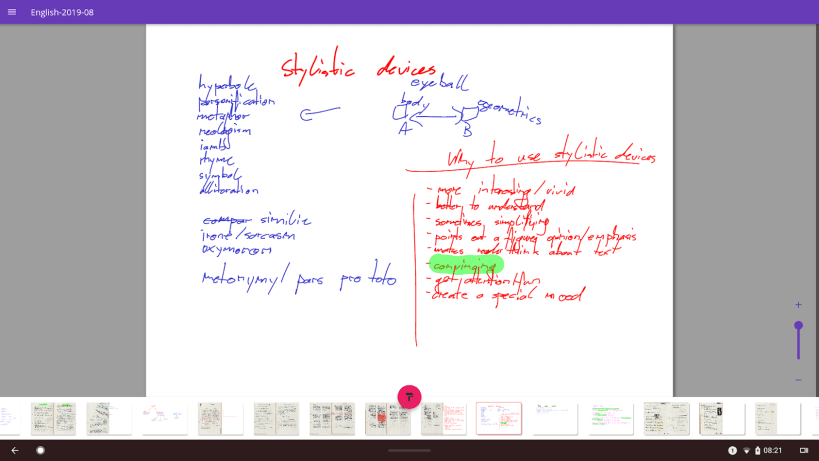 English-2019-08
Stylistic devices
hyperbole
personification
metapher
neologism
iambs
rhyme
symbol
alliteration
compar similie
irone/sarcasm
oxymoron
metonymy/ pars pro toto
eyeball
body
geometrics
A
B
Why to use stylistic devices
- more interesting/vivid
- better to understand
- sometimes simplifying
- points out a figures opinion/emphasis
- makes think about text
- convincing
- get attention/fun
- create a special mood
1
08:21